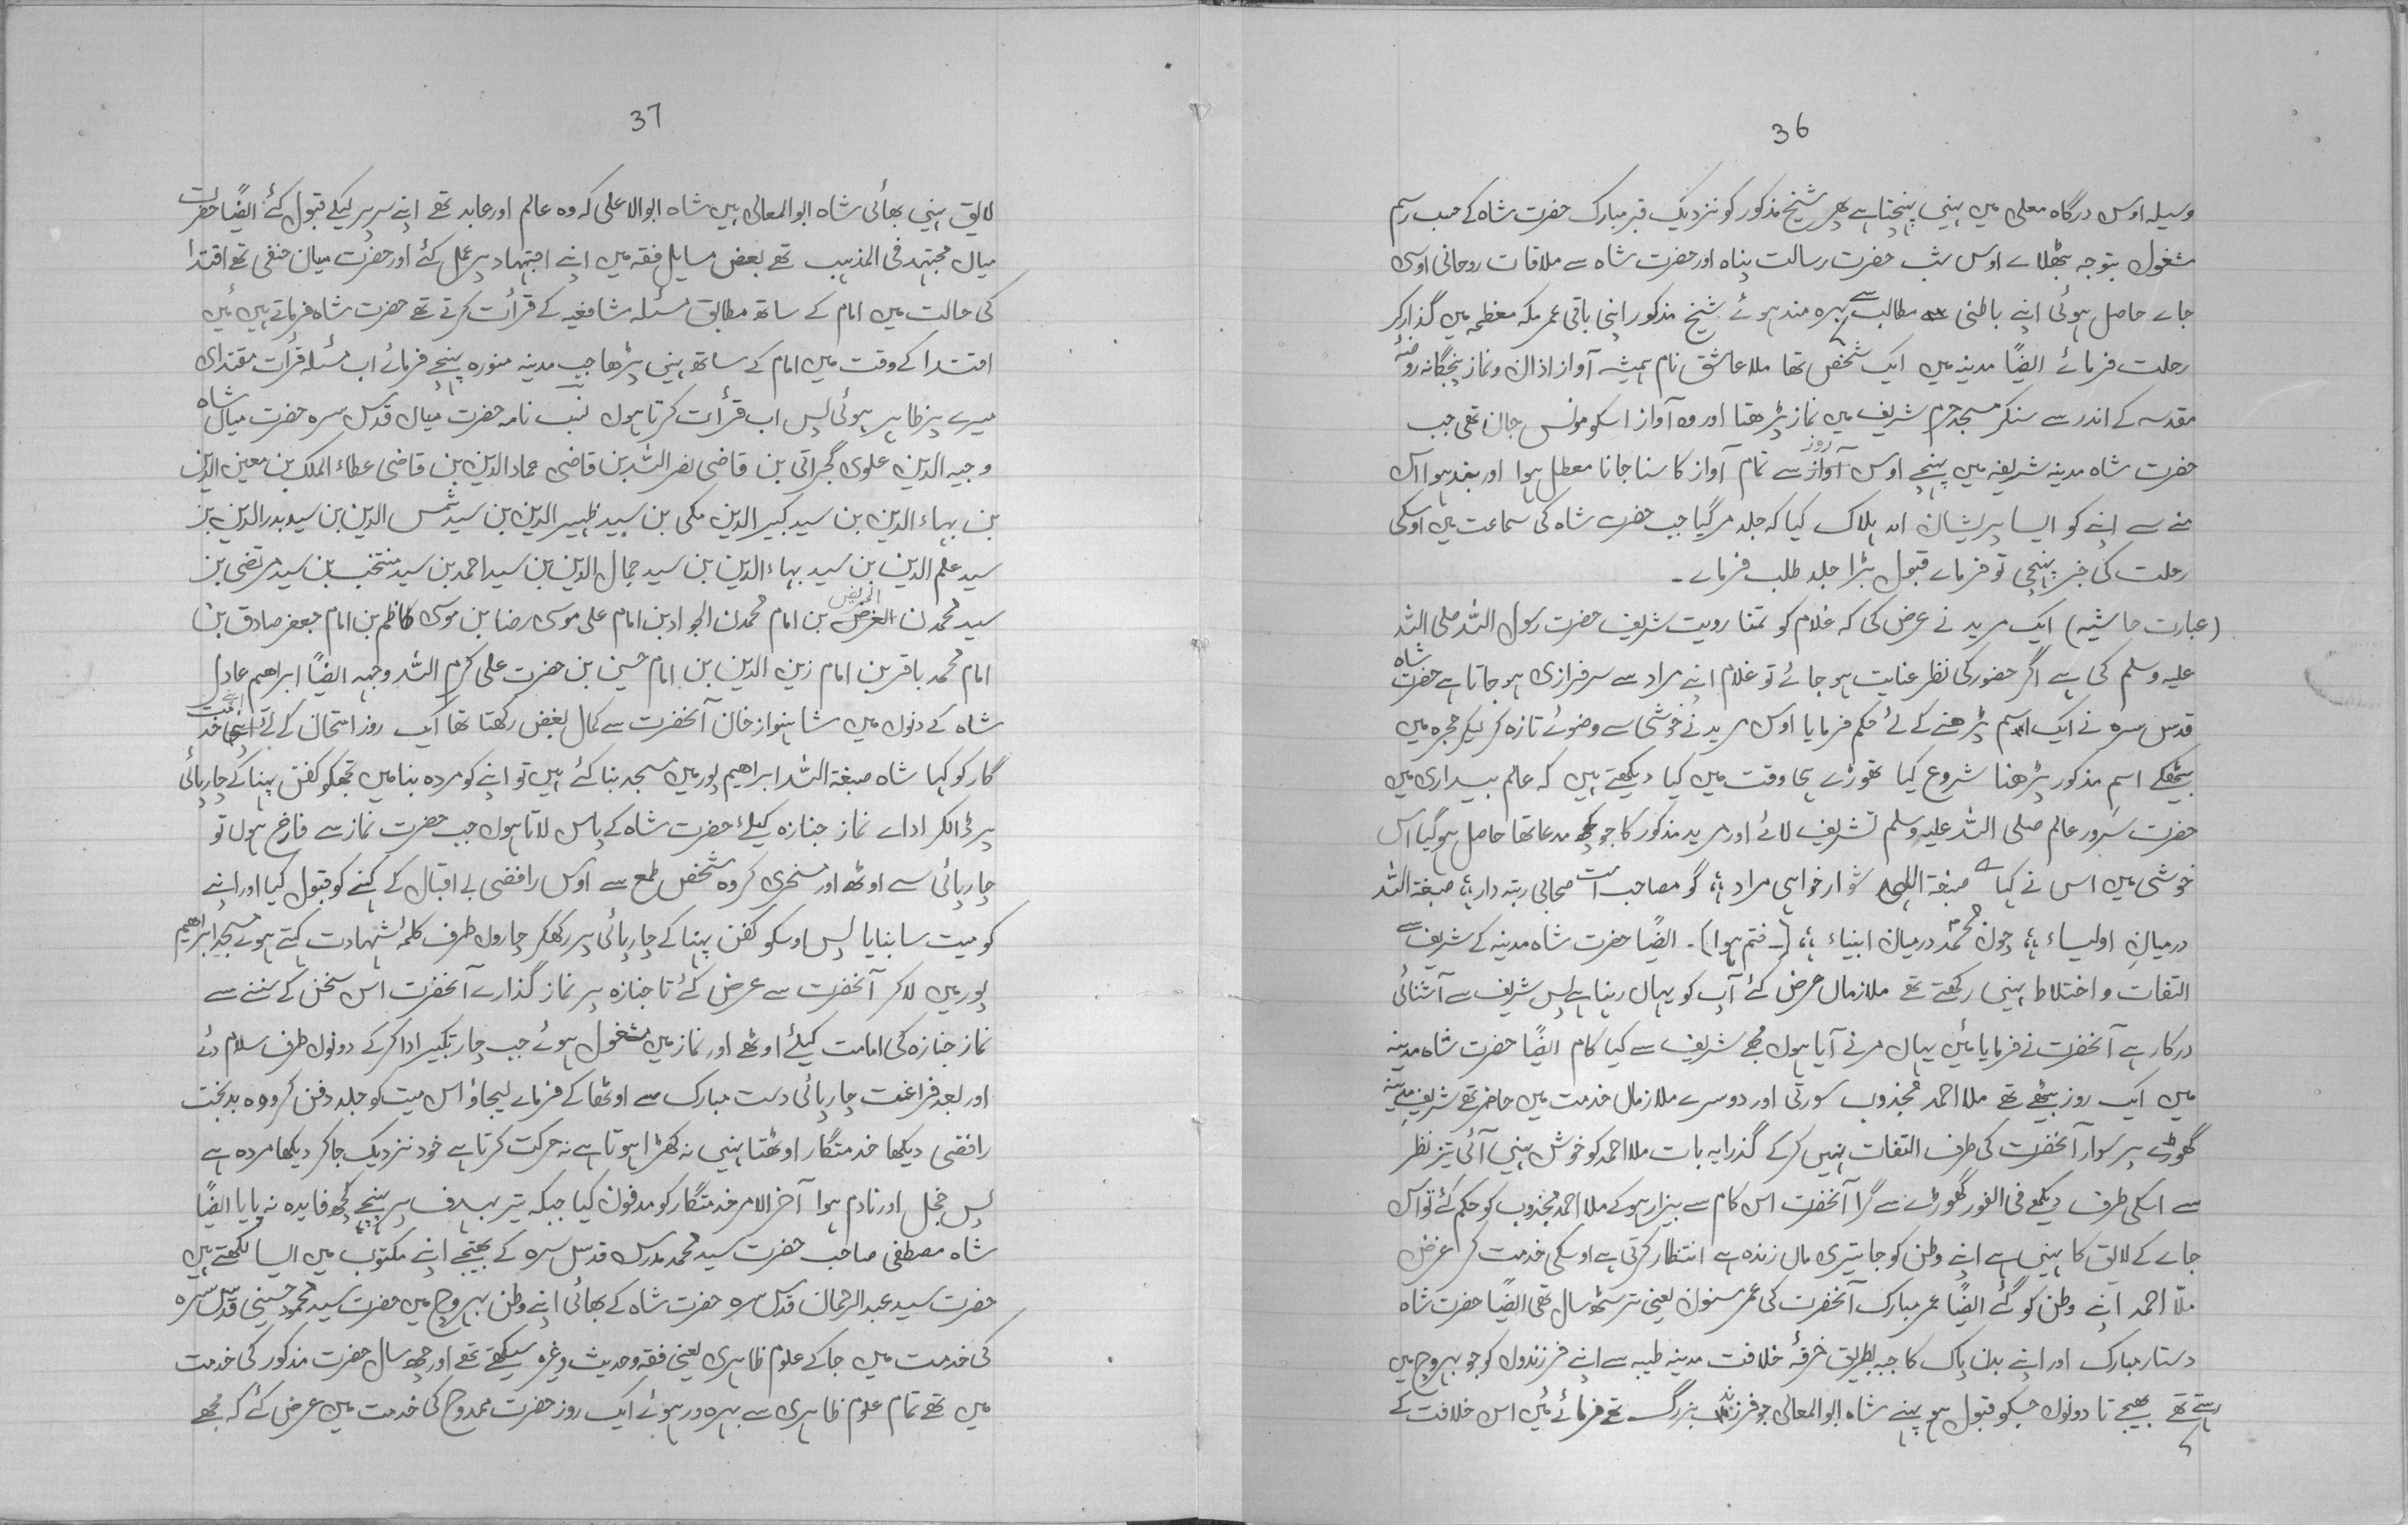 36
وسیلہ اوس درگاہ معلی میں ہینی پہنچتا ہے پھر شیخ مذکور کو نزدیک قبر مبارک حضرت شاہ کے حسب رسم
مشغول بتوجہ بٹھلاے اوس شب حضرت رسالت پناہ اور حضرت شاہ سے ملاقات روحانی اوسی
جاے حاصل ہوئی اپنے باطنی مطالب سے بہرہ مند ہوئے شیخ مذکور اپنی باقی عمر مکہ معظمہ میں گذار کر
رحلت فرمائے ایضًا مدینہ میں ایک شخص تھا ملا عاشق نام ہمیشہ آواز اذان و نماز پنجگانہ روضۂ
مقدسہ کے اندر سے سنکر مسجد حرم شریف میں نماز پڑھتا اور وہ آواز اسکو مونس جان تھی جب
حضرت شاہ مدینہ شریفہ میں پہنچے اوس روز سے تمام آواز کا سنا جانا معطل ہوا اور بند ہوا اس
سے اپنے کو ایسا پریشان اور ہلاک کیا کہ جلد مر گیا جب حضرت شاہ کی سماعت میں اوسکی
رحلت کی خبر پہنچی تو فرماے قبول بڑا جلد طلب فرماے ۔
(عبارت حاشیہ) ایک مرید نے عرض کی کہ غلام کو تمنا رویت شریف حضرت رسول اللہ صلی اللہ
علیہ وسلم کی ہے اگر حضور کی نظر عنایت ہو جائے تو غلام اپنے مراد سے سرفرازی ہو جاتا ہے حضرت شاہ
قدس سرہ نے ایک اسم پڑھنے کے لئے حکم فرمایا اوس مرید نے خوشی سے وضوئے تازہ کر لیکر حجرہ میں
بیٹھکے اسم مذکور پڑھنا شروع کیا تھوڑے ہی وقت میں کیا دیکھتے ہیں کہ عالم بیداری میں
حضرت سرور عالم صلی اللہ علیہ وسلم تشریف لائے اور مرید مذکور کا جو کچھ مدعا تھا حاصل ہوگیا اس
خوشی میں اس نے کہا صبغۃ اللہی شو ار خواہی مراد ؛؛ گو مصاحب است صحابی رتبہ دار ؛؛ صبغۃ اللہ
درمیانِ اولیاء ؛؛ چون محمدؐ درمیان انبیاء ؛؛ (۔ ختم ہوا)۔ ایضًا حضرت شاہ مدینہ کے شریف سے
التفات و اختلاط ہینی رکھتے تھے ملازمان عرض کئے آپ کو یہاں رہنا ہے بس شریف سے آشنائی
درکار ہے آنحضرت نے فرمایا میں یہاں مرنے آیا ہوں مجھے شریف سے کیا کام ایضًا حضرت شاہ مدینہ
میں ایک روز بیٹھے تھے ملا احمد مجذوب سورتی اور دوسرے ملازمان خدمت میں حاضر تھے شریف مدینہ
گھوڑے پر سوار آنحضرت کی طرف التفات نہیں کرکے گذرا یہ بات ملا احمد کو خوش ہینی آئی تیز نظر
سے اسکی طرف دیکھے فی الفور گھوڑے سے گرا آنحضرت اس کام سے بیزار ہو کے ملا احمد مجذوب کو حکم کئے تو اس
جاے کے لایق کا ہینی ہے اپنے وطن کو جا تیری ماں زندہ ہے انتظار کرتی ہے اوسکی خدمت کر غرض
ملّا احمد اپنے وطن کو گئے ایضًا عمر مبارک آنحضرت کی عمر مسنون یعنی ترسٹھ سال تھی ایضًا حضرت شاہ
دستار مبارک اور اپنے بدن پاک کا جبہ بطریق خرقۂ خلافت مدینہ طیبہ سے اپنے فرزندوں کو جو بہروچ میں
رہتے تھے بھیجے تا دونوں جسکو قبول ہو پہنے شاہ ابوالمعالی جو فرزند بزرگ تھے فرمائے میں اس خلافت کے
37
لایق ہینی بھائی شاہ ابوالمعالی ہیں شاہ ابوالاعلی کہ وہ عالم اور عابد تھے اپنے سر پر لیکے قبول کئے ایضًا حضرت
میاں مجتہد فی المذہب تھے بعض مسایل فقہ میں اپنے اجتہاد پر عمل کئے اور حضرت میاں حنفی تھے اقتدا
کی حالت میں امام کے ساتھ مطابق مسئلہ شافعیہ کے قرأت کرتے تھے حضرت شاہ فرماتے ہیں میں
اقتدا کے وقت میں امام کے ساتھ ہینی پڑھا جب مدینہ منورہ پہنچے فرمائے اب مسئلہ قرأت مقتدای
میرے پر ظاہر ہوئی پس اب قرأت کرتا ہوں نسب نامہ حضرت میاں قدس سرہ حضرت میاں شاہ
وجیہ الدین علوی گجراتی بن قاضی نصر اللہ بن قاضی عماد الدین بن قاضی عطاء الملک بن معین الدین
بن بہاء الدین بن سید کبیر الدین مکی بن سید ظہیر الدین بن سید شمس الدین بن سید بدر الدین بن
سید علم الدین بن سید بہاء الدین بن سید جمال الدین بن سید احمد بن سید منتخب بن سید مرتضی بن
سید محمدن العریض بن امام محمدن الجواد بن امام علی موسی رضا بن موسی کاظم بن امام جعفر صادق بن
امام محمد باقر بن امام زین الدین بن امام حسین بن حضرت علی کرم اللہ وجہہ ایضًا ابراهیم عادل
شاہ کے دنوں میں شاہنواز خان آنحضرت سے کمال بغض رکھتا تھا ایک روز امتحان کے لئے اپنے خدمت
گار کو کہا شاہ صبغۃ اللہ ابراهیم پور میں مسجد بنا کئے ہیں تو اپنے کو مردہ بنا میں تجھکو کفن پہنا کے چارپائی
پر ڈالکر اداے نماز جنازہ کیلئے حضرت شاہ کے پاس لاتا ہوں جب حضرت نماز سے فارغ ہوں تو
چارپائی سے اوٹھ اور مسخری کر وہ شخص طمع سے اوس رافضی بے اقبال کے کہنے کو قبول کیا اور اپنے
کو میت سا بنایا پس اوسکو کفن پہنا کے چارپائی پر رکھکر چاروں طرف کلمۂ شہادت کہتے ہوئے مسجد ابراهیم
پور میں لاکر آنحضرت سے عرض کئے تا جنازہ پر نماز گذارے آنحضرت اس سخن کے سننے سے
نماز جنازہ کی امامت کیلئے اوٹھے اور نماز میں مشغول ہوئے جب چار تکبیر ادا کرکے دونوں طرف سلام دئے
اور بعد فراغت چارپائی دست مبارک سے اوٹھا کے فرماے لیجاؤ اس میت کو جلد دفن کرو وہ بدبخت
رافضی دیکھا خدمتگار اوٹھتا ہینی نہ کھڑا ہوتا ہے نہ حرکت کرتا ہے خود نزدیک جاکر دیکھا مردہ ہے
پس خجل اور نادم ہوا آخر الامر خدمتگار کو مدفون کیا جبکہ تیر بہدف پر پہنچے کچھ فایدہ نہ پایا ایضًا
شاہ مصطفی صاحب حضرت سید محمد مدرس قدس سرہ کے بھتیجے اپنے مکتوب میں ایسا لکھتے ہیں
حضرت سید عبدالرحمان قدس سرہ حضرت شاہ کے بھائی اپنے وطن بہروچ میں حضرت سید محمود حسینی قدس سرہ
کی خدمت میں جاکے علوم ظاہری یعنی فقہ وحدیث وغیرہ سیکھتے تھے اور چھ سال حضرت مذکور کی خدمت
میں تھے تمام علوم ظاہری سے بہرہ ور ہوئے ایک روز حضرت ممدوح کی خدمت میں عرض کئے کہ مجھے